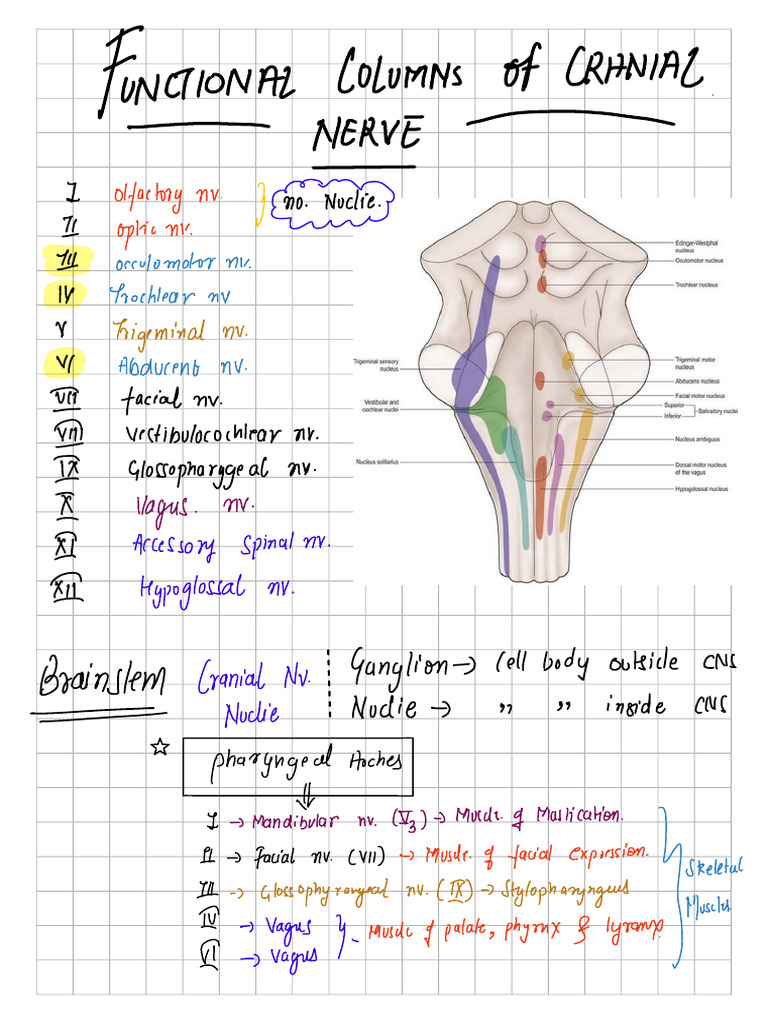 FUNCTIONAL COLUMNS of CRANIAL
NERVE
I Olfactory nv.
II optic nv.
no. Nuclie.
III occulomotor nv.
IV Trochlear nv
V Trigeminal nv.
VI Abducent nv.
VII facial nv.
VIII vestibulocochlear nv.
IX Glossopharygeal nv.
X Vagus. nv.
XI Accessory Spinal nv.
XII Hypoglossal nv.
Edinger-Westphal
nucleus
Oculomotor nucleus
Trochlear nucleus
Trigeminal sensory
nucleus
Vestibular and
cochlear nuclei
Nucleus solitarius
Trigeminal motor
nucleus
Abducens nucleus
Facial motor nucleus
Superior
Inferior
Salivatory nuclei
Nucleus ambiguus
Dorsal motor nucleus
of the vagus
Hypoglossal nucleus
Brainstem
Cranial Nv.
Nuclie
Ganglion → Cell body outside CNS
Nuclie → " " inside CNS
☆ pharyngeal Arches
⇓
I → Mandibular nv. (V3) → Muscle of Mastication.
II → Facial nv. (VII) → Muscle of facial Expression.
III → Glossophyrangeal nv. (IX) → Stylopharyngeus
IV → Vagus
VI → Vagus
Muscle of palate, phyrnx & lyranx.
Skeletal
Muscles